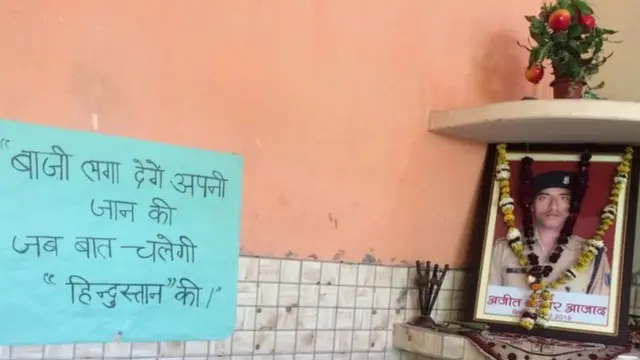 "बाजी लगा देगें अपनी
जान की
जब बात चलेगी
"हिन्दुस्तान" की।"
अजीत आजाद
2016